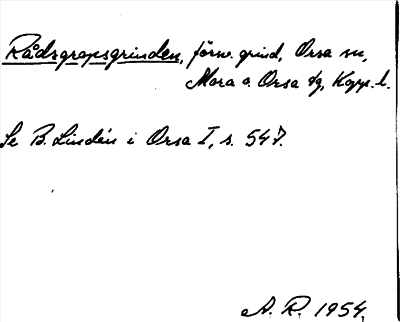 Rådsgropsgrinden, förv. grind, Orsa sn,
Mora o. Orsa tg, Kopp. l.
Se B. Lindén i Orsa I, s. 547.
A. R. 1954.